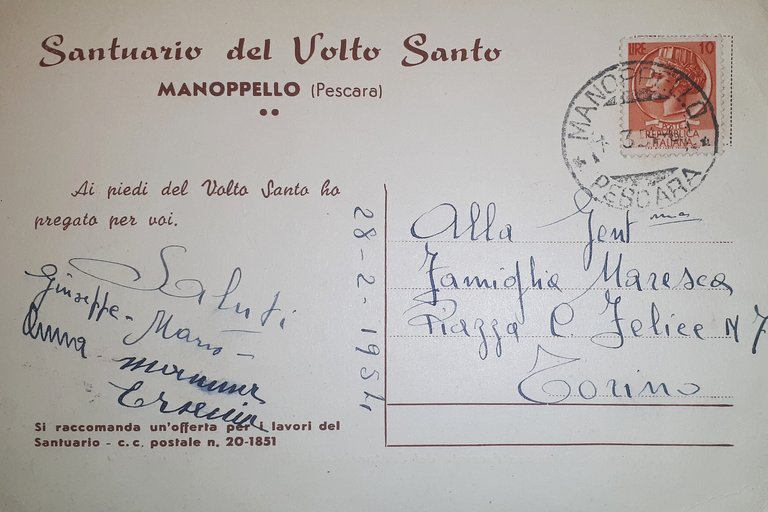 Santuario del Volto Santo
MANOPPELLO (Pescara)
LIRE 10
REPUBBLICA
ITALIANA
MANOPPELLO
PESCARA
Ai piedi del Volto Santo ho
pregato per voi.
Saluti
Giuseppe - Mario -
Anna - mamma
28-2-1954
Alla Gent ma
Famiglia Maresca
Piazza C. Felice N 7
Torino
Si raccomanda un'offerta per i lavori del
Santuario - c. c. postale n. 20-1851